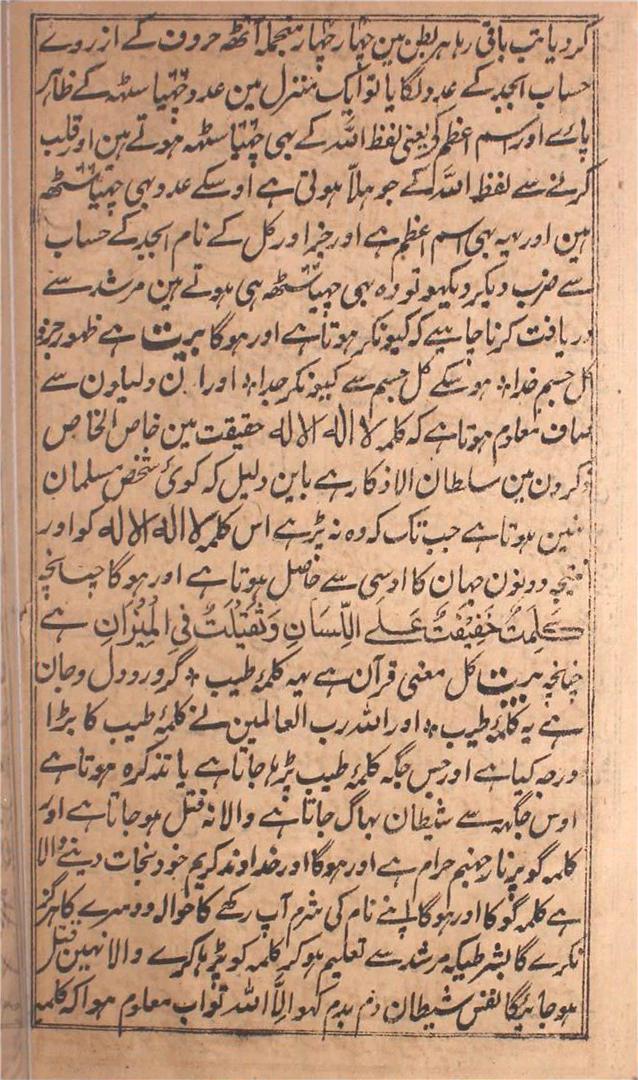 کردیا تب باقی رہا ہر بطن مین چہار چہار منجملہ آٹھہ حروف کے از روے
حساب ابجد کے عدد لگایا تو ایک منزل مین عدد چہیاسٹھہ کے ظاہر
پاے اور اسم اعظم کو یعنی لفظ اللہ کے بہی چہیاسٹھہ ہوتے ہین اور قلب
کرنے سے لفظ اللہ کے جو ہلّا ہوتی ہے اوسکے عدد بہی چہیاسٹھہ
ہین اور یہہ بہی اسم اعظم ہے اور جز اور کل کے نام ابجد کے حساب
سے ضرب دیکر دیکہو تو وہ بہی چہیاسٹھہ ہی ہوتے ہین مرشد سے
دریافت کرنا چاہیے کہ کیونکر ہوتا ہے اور ہوگا بیت ہے ظہور جزو
کل جسم خدا ٭ ہوسکے کل جسم سے کیونکر جدا ٭ اور ان دلیلون سے
صاف معلوم ہوتا ہے کہ کلمہ لا الہ الا للہ حقیقت مین خاص الخاص
ذکرون مین سلطان الاذکار ہے باین دلیل کہ کوئی شخص مسلمان
نہین ہوتا ہے جب تک کہ وہ نہ پڑہے اس کلمہ لا الہ الا للہ کو اور
نتیجہ دونون جہان کا اوسی سے حاصل ہوتا ہے اور ہوگا چنانچہ
کَلِمَتٌ خَفِیْفَتٌ عَلَے اللِّسَانِ وَثَقِیْلَتٌ فِی الْمِیْزَانِ ہے
چنانچہ بیت کل معنی قرآن ہے یہہ کلمۂ طیب ٭ گر ورد دل و جان
ہے یہ کلمۂ طیب ٭ اور اللہ رب العالمین نے کلمۂ طیب کا بڑا
درجہ کیا ہے اور جس جگہ کلمۂ طیب پڑہا جاتا ہے یا تذکرہ ہوتا ہے
اوس جگہہ سے شیطان بہاگ جاتا ہے والا نہ قتل ہو جاتا ہے اور
کلمہ گو پر نار جہنم حرام ہے اور ہوگا اور خداوند کریم خود نجات دینے والا
ہے کلمہ گو کا اور ہوگا اپنے نام کی شرم آپ رکہے کا حوالہ دوسرے کا ہرگز
نکرے گا بشرطیکہ مرشد سے تعلیم ہوکر کلمہ کو پڑہا کرے والا نہین قتل
ہو جائیگا نفس شیطان دم بدم کہو الّا اللہ تو اب معلوم ہوا کہ کلمہ